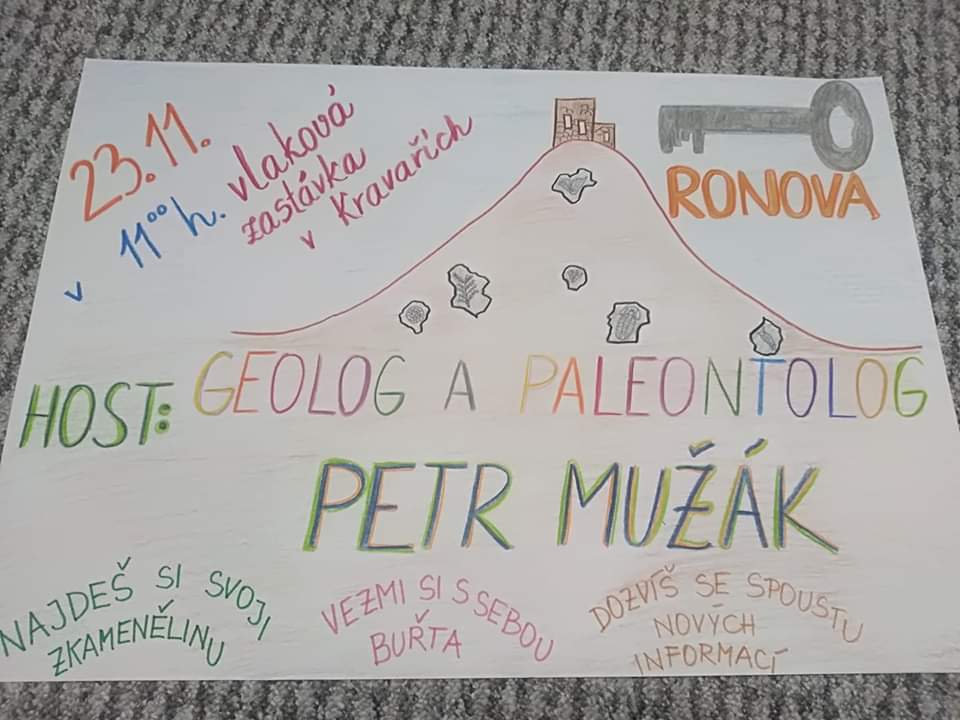 23.11.
v 11⁰⁰ h. vlaková
zastávka
v Kravařích
RONOVA
HOST: GEOLOG A PALEONTOLOG
PETR MUŽÁK
NAJDEŠ SI SVOJI
ZKAMENĚLINU
VEZMI SI S SEBOU
BUŘTA
DOZVÍŠ SE SPOUSTU
NOVÝCH
INFORMACÍ